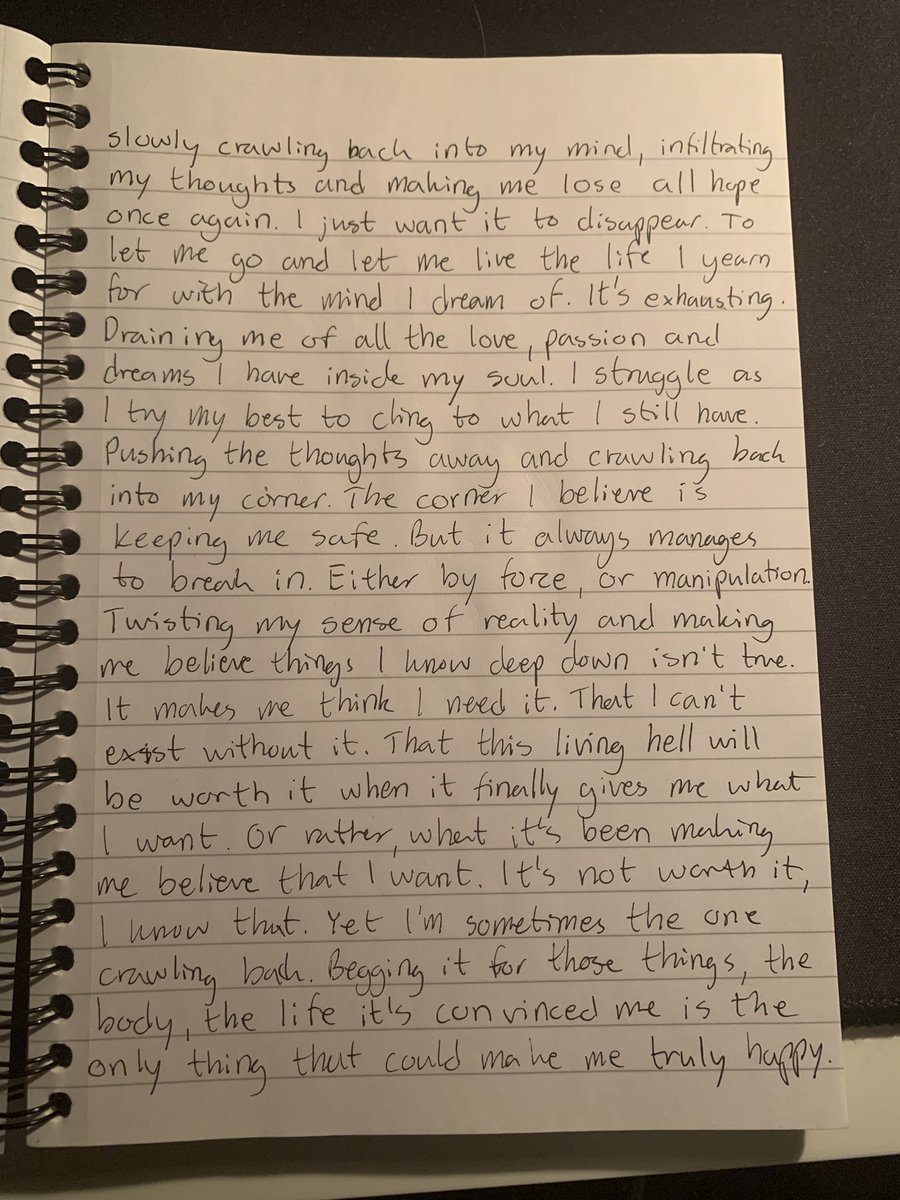 slowly crawling back into my mind, infiltrating
my thoughts and making me lose all hope
once again. I just want it to disappear. To
let me go and let me live the life I yearn
for with the mind I dream of. It's exhausting.
Draining me of all the love, passion and
dreams I have inside my soul. I struggle as
I try my best to cling to what I still have.
Pushing the thoughts away and crawling back
into my corner. The corner I believe is
keeping me safe. But it always manages
to break in. Either by force, or manipulation.
Twisting my sense of reality and making
me believe things I know deep down isn't true.
It makes me think I need it. That I can't
exist without it. That this living hell will
be worth it when it finally gives me what
I want. Or rather, what it's been making
me believe that I want. It's not worth it,
I know that. Yet I'm sometimes the one
crawling back. Begging it for those things, the
body, the life it's convinced me is the
only thing that could make me truly happy.